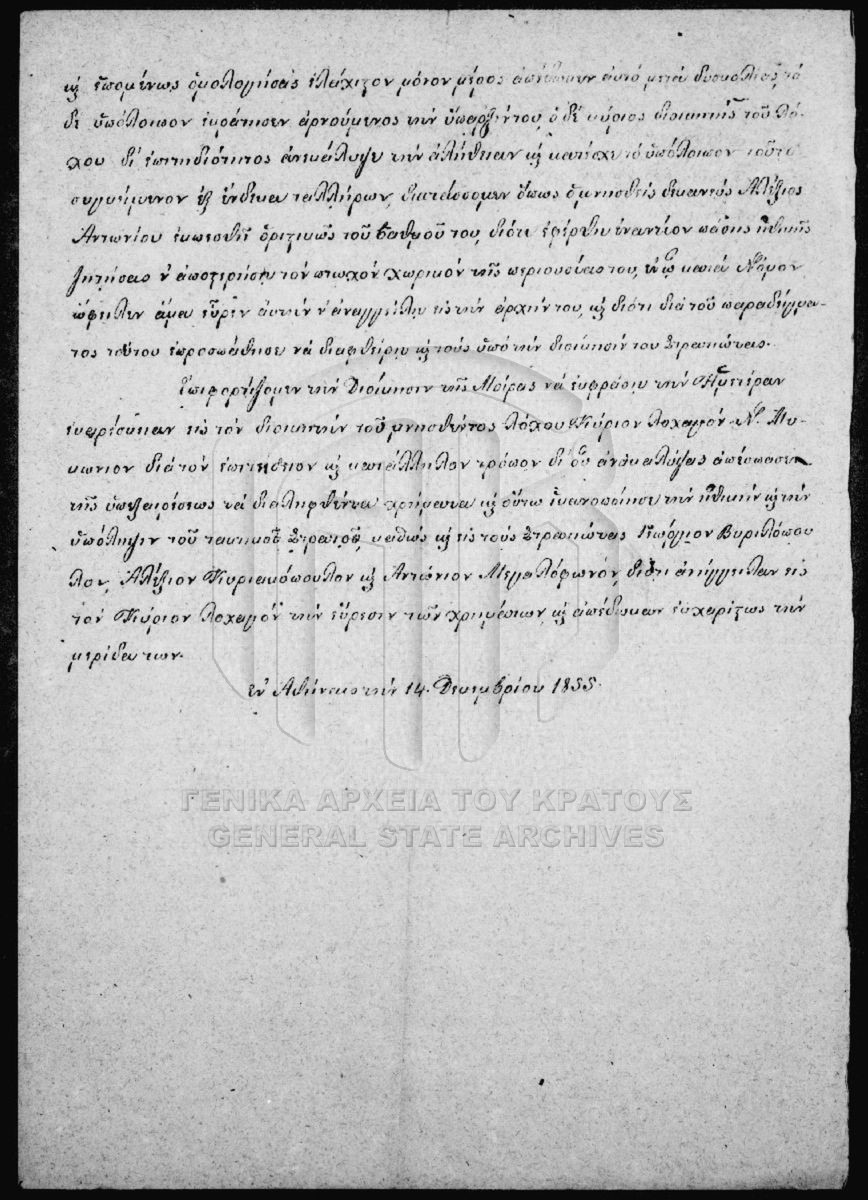 καὶ ἑπομένως ὁμολογήσας ἐλάχιστον μόνον μέρος ἀπέδωκεν αὐτὸ μετὰ δυσκολίας, τὸ
δὲ ὑπόλοιπον ἐκράτησεν ἀρνούμενος τὴν ὕπαρξίν του, ὁ δὲ κύριος διοικητὴς τοῦ λό-
χου δι' ἐπιτηδιότητος ἀνεκάλυψε τὴν ἀλήθειαν καὶ κατέσχε τὸ ὑπόλοιπον τοῦτο
συγκείμενον ἐξ ἕνδεκα ταλλήρων, διατάσσομεν ὅπως ὁ μνησθεὶς δεκανεὺς Ἀλέξιος
Ἀντωνίου ἐκπεσθῇ ὁριστικῶς τοῦ βαθμοῦ του, διότι ἐφέρθη ἐναντίον πάσης ἠθικῆς
ζητήσας ν' ἀποστερήσῃ τὸν πτωχὸν χωρικὸν τῆς περιουσίας του, ἐν ᾧ κατὰ Νόμον
ὤφειλεν ἅμα εὗρεν αὐτὴν ν' ἀναγγείλῃ εἰς τὴν ἀρχήν του, καὶ διότι διὰ τοῦ παραδείγμα-
τος τούτου ἐπροσπάθησε νὰ διαφθείρῃ καὶ τοὺς ὑπὸ τὴν διοίκησίν του Στρατιώτας.
Ἐπιφορτίζομεν τὴν Διοίκησιν τῆς Μοίρας νὰ ἐκφράσῃ τὴν Ἡμετέραν
εὐαρέσκειαν εἰς τὸν διοικητὴν τοῦ μνησθέντος Λόχου Κύριον Λοχαγὸν Ν.
διὰ τὸν ἐπιτήδειον καὶ κατάλληλον τρόπον δι' οὗ ἀνακαλύψας ἀπέσπασε
τῆς ὑπεξαιρέσεως τὰ διαληφθέντα χρήματα καὶ οὕτω ἱκανοποίησε τὴν ἠθικὴν καὶ τὴν
ὑπόληψιν τοῦ τακτικοῦ Στρατοῦ, καθὼς καὶ εἰς τοὺς Στρατιώτας Γεώργιον Βυριλόπου
λον, Ἀλέξιον Κυριακόπουλον καὶ Ἀντώνιον Μεγαλόφωνον, διότι ἀνήγγειλαν εἰς
τὸν Κύριον Λοχαγὸν τὴν εὕρεσιν τῶν χρημάτων, καὶ ἀπέδωκαν εὐχαρίστως τὴν
μερίδα των.
ἐν Ἀθήναις τὴν 14. Δεκεμβρίου 1855.
ΓΕΝΙΚΑ ΑΡΧΕΙΑ ΤΟΥ ΚΡΑΤΟΥΣ
GENERAL STATE ARCHIVES